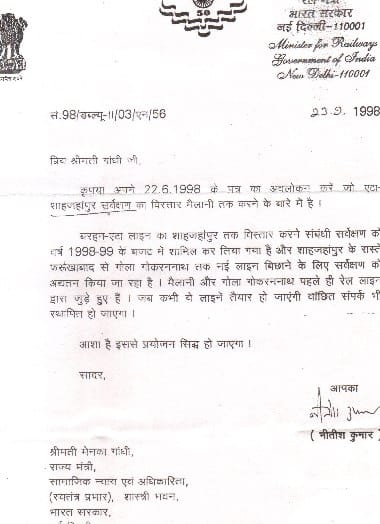 50
रेल मंत्री
भारत सरकार
नई दिल्ली-110001
Minister for Railways
Government of India
New Delhi-110001
सं.98/डब्ल्यू-II/03/एन/56
23.9. 1998
प्रिय श्रीमती गांधी जी,
कृपया अपने 22.6.1998 के पत्र का अवलोकन करें जो एटा-
शाहजहांपुर सर्वेक्षण का विस्तार मैलानी तक करने के बारे में है ।
बरहन-एटा लाइन का शाहजहांपुर तक विस्तार करने संबंधी सर्वेक्षण को
वर्ष 1998-99 के बजट में शामिल कर लिया गया है और शाहजहांपुर के रास्ते
फर्रूखाबाद से गोला गोकरननाथ तक नई लाइन बिछाने के लिए सर्वेक्षण को
अद्यतन किया जा रहा है । मैलानी और गोला गोकरननाथ पहले ही रेल लाइन
द्वारा जुड़े हुए हैं । जब कभी ये लाइनें तैयार हो जाएंगी वांछित संपर्क भी
स्थापित हो जाएगा ।
आशा है इससे प्रयोजन सिद्ध हो जाएगा ।
सादर,
आपका
( नीतीश कुमार )
श्रीमती मेनका गांधी,
राज्य मंत्री,
सामाजिक न्याय एवं अधिकारिता,
(स्वतंत्र प्रभार), शास्त्री भवन,
भारत सरकार,